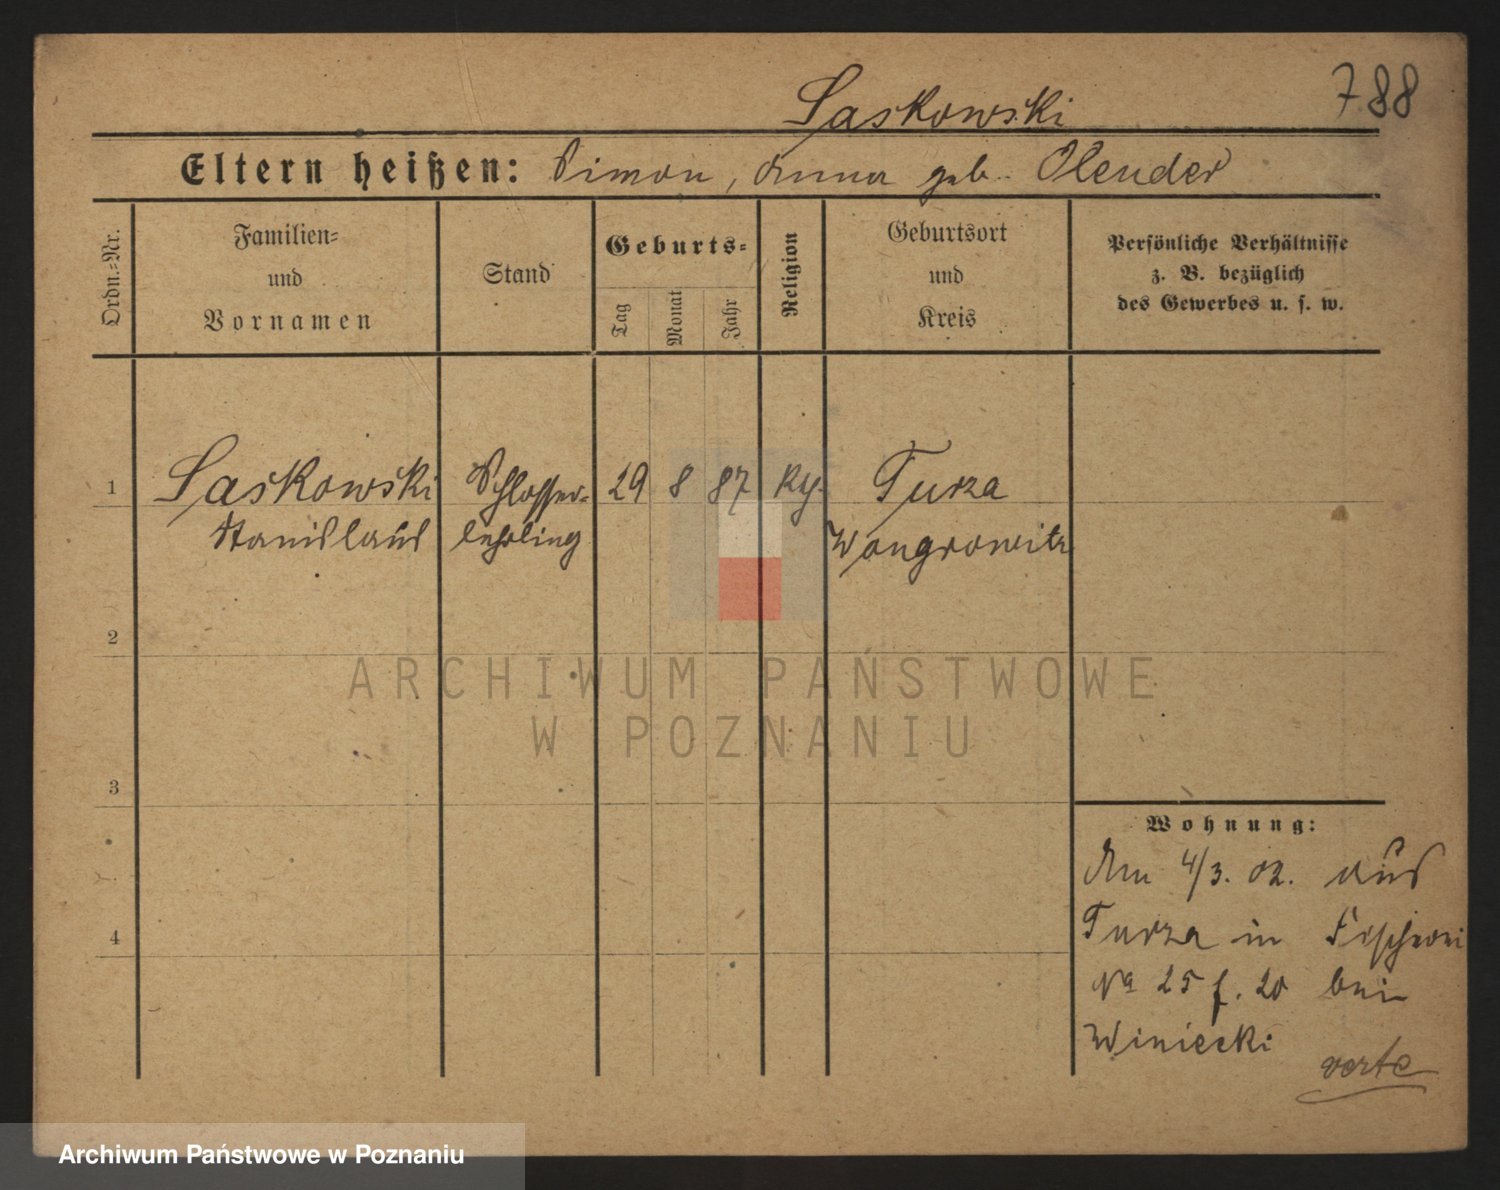 788
Laskowski
Eltern heißen: Simon, Anna geb. Olender
Ordn.=Nr.
Familien=
und
Vornamen
Stand
Geburts=
Tag
Monat
Jahr
Religion
Geburtsort
und
Kreis
Persönliche Verhältnisse
z. B. bezüglich
des Gewerbes u. s. w.
1
Laskowski
Stanislaus
Schlosser=
lehrling
29 8 87
Turza
Wongrowitz
2
3
4
ARCHIWUM PAŃSTWOWE
W POZNANIU
Wohnung:
Am 4/3. 02. aus
Turza in
No 25 f. 20 bei
Winiecki
verte
Archiwum Państwowe w Poznaniu